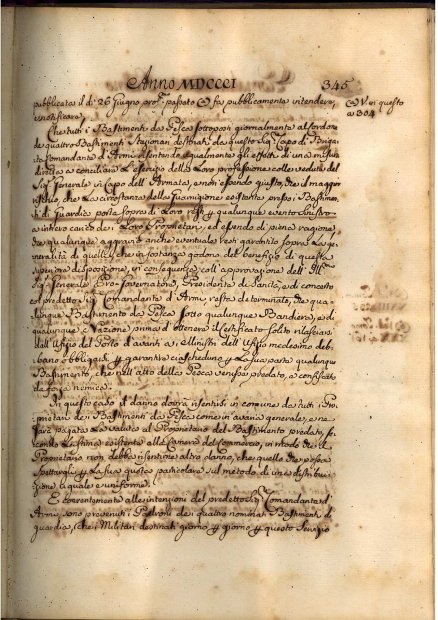 Anno MDCCCI 345
pubblicata il dì 26 Giugno pros.º passato @ fa pubblicamente intendere, @ V. in questo
e notificare, a 304
Che tutti i Bastimenti da Pesca sottoposti giornalmente al cordone
de quattro Bastimenti Stazionari destinati da questo Sig.r Capo di Briga-
ta Comandante d'Armi risentendo egualmente gli effetti di una misura
diretta a conciliare l'esercizio della Loro professione colle vedute del
Sig.r Generale in Capo dell'Armata, e non essendo giusto, che il maggior
rischio, che La circostanza della Guarnigione esistente presso i Bastimen-
ti di Guardia porta sopra di Loro resti p qualunque evento sinistro
a intiero carico dei Loro Proprietari, ed essendo di piena ragione
che qualunque aggravio anche eventuale resti garantito sopra La ge-
neralità di quelli, che in potenza godono del beneficio di questa
superiore disposizione, in conseguenza coll'approvazione dell'Ill.mo
Sig.r Generale Pro-Governatore, Presidente di Sanità, e di concerto
col predetto Sig.r Comandante d'Armi, resta determinato, che qua-
lunque Bastimento da Pesca sotto qualunque Bandiera, e di
qualunque Nazione prima d'ottenere il certificato solito rilasciarsi
dall'Ufizio del Porto davanti a i Ministri dell'Ufizio medesimo deb-
bano obbligarsi, p garantire ciascheduno p La sua parte qualunque
Bastimento, che nell'atto della Pesca venisse predato, o confiscato
da forza nemica.
In questo caso il danno dovrà risentirsi in comune da tutti i Pro-
prietari dei Bastimenti da Pesca come in avaria generale, e ne
sarà pagata La valuta al Proprietario del Bastimento predato, se-
condo La stima esistente alla Camera del Commercio, in modo che il
Proprietario non debba risentirne altro danno, che quello che possa
Spettargli p La sua quota particolare sul metodo di una distribu-
zione eguale e uniforme.
E coerentemente alle intenzioni del predetto Sig.r Comandante d'
Armi, sono prevenuti i Padroni dei quattro nominati Bastimenti di
guardia, che i Militari destinati giorno p giorno p questo Servizio